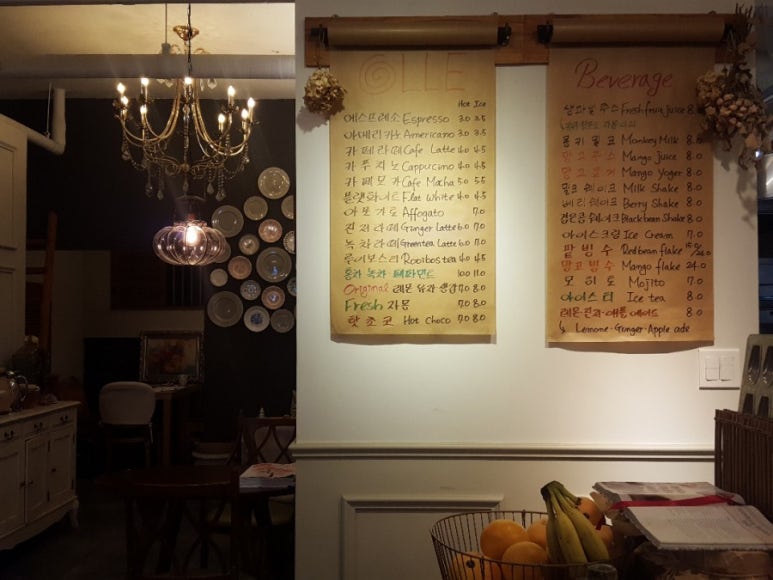 OLLE
Hot Ice
에스프레소 Espresso 3.0 3.5
아메리카노 Americano 3.0 3.5
카페라떼 Cafe Latte 4.0 4.5
카푸치노 Cappuccino 4.0 4.5
카페모카 Cafe Mocha 5.0 5.5
플랫화이트 Flat White 4.0 4.5
아포가토 Affogato 7.0
진저라떼 Ginger Latte 6.0 7.0
녹차라떼 Green tea Latte 6.0 7.0
루이보스티 Rooibos tea 4.0 4.5
홍차 녹차 페퍼민트 10.0 11.0
Original 레몬 유자 생강 7.0 8.0
Fresh 자몽 7.0 8.0
핫초코 Hot Choco 7.0 8.0
Beverage
생과일 주스 Fresh fruit juice 8.0
몽키밀크 Monkey Milk 8.0
망고주스 Mango juice 8.0
망고요거 Mango Yoger 8.0
밀크 쉐이크 Milk Shake 8.0
베리 쉐이크 Berry Shake 8.0
검은콩 쉐이크 Black bean Shake 8.0
아이스크림 Ice Cream 7.0
팥빙수 Red bean flake
망고빙수 Mango flake 24.0
모히또 Mojito 7.0
아이스티 Ice tea 8.0
레몬·진저·애플 에이드 8.0
↳ Lemone·Ginger·Apple ade